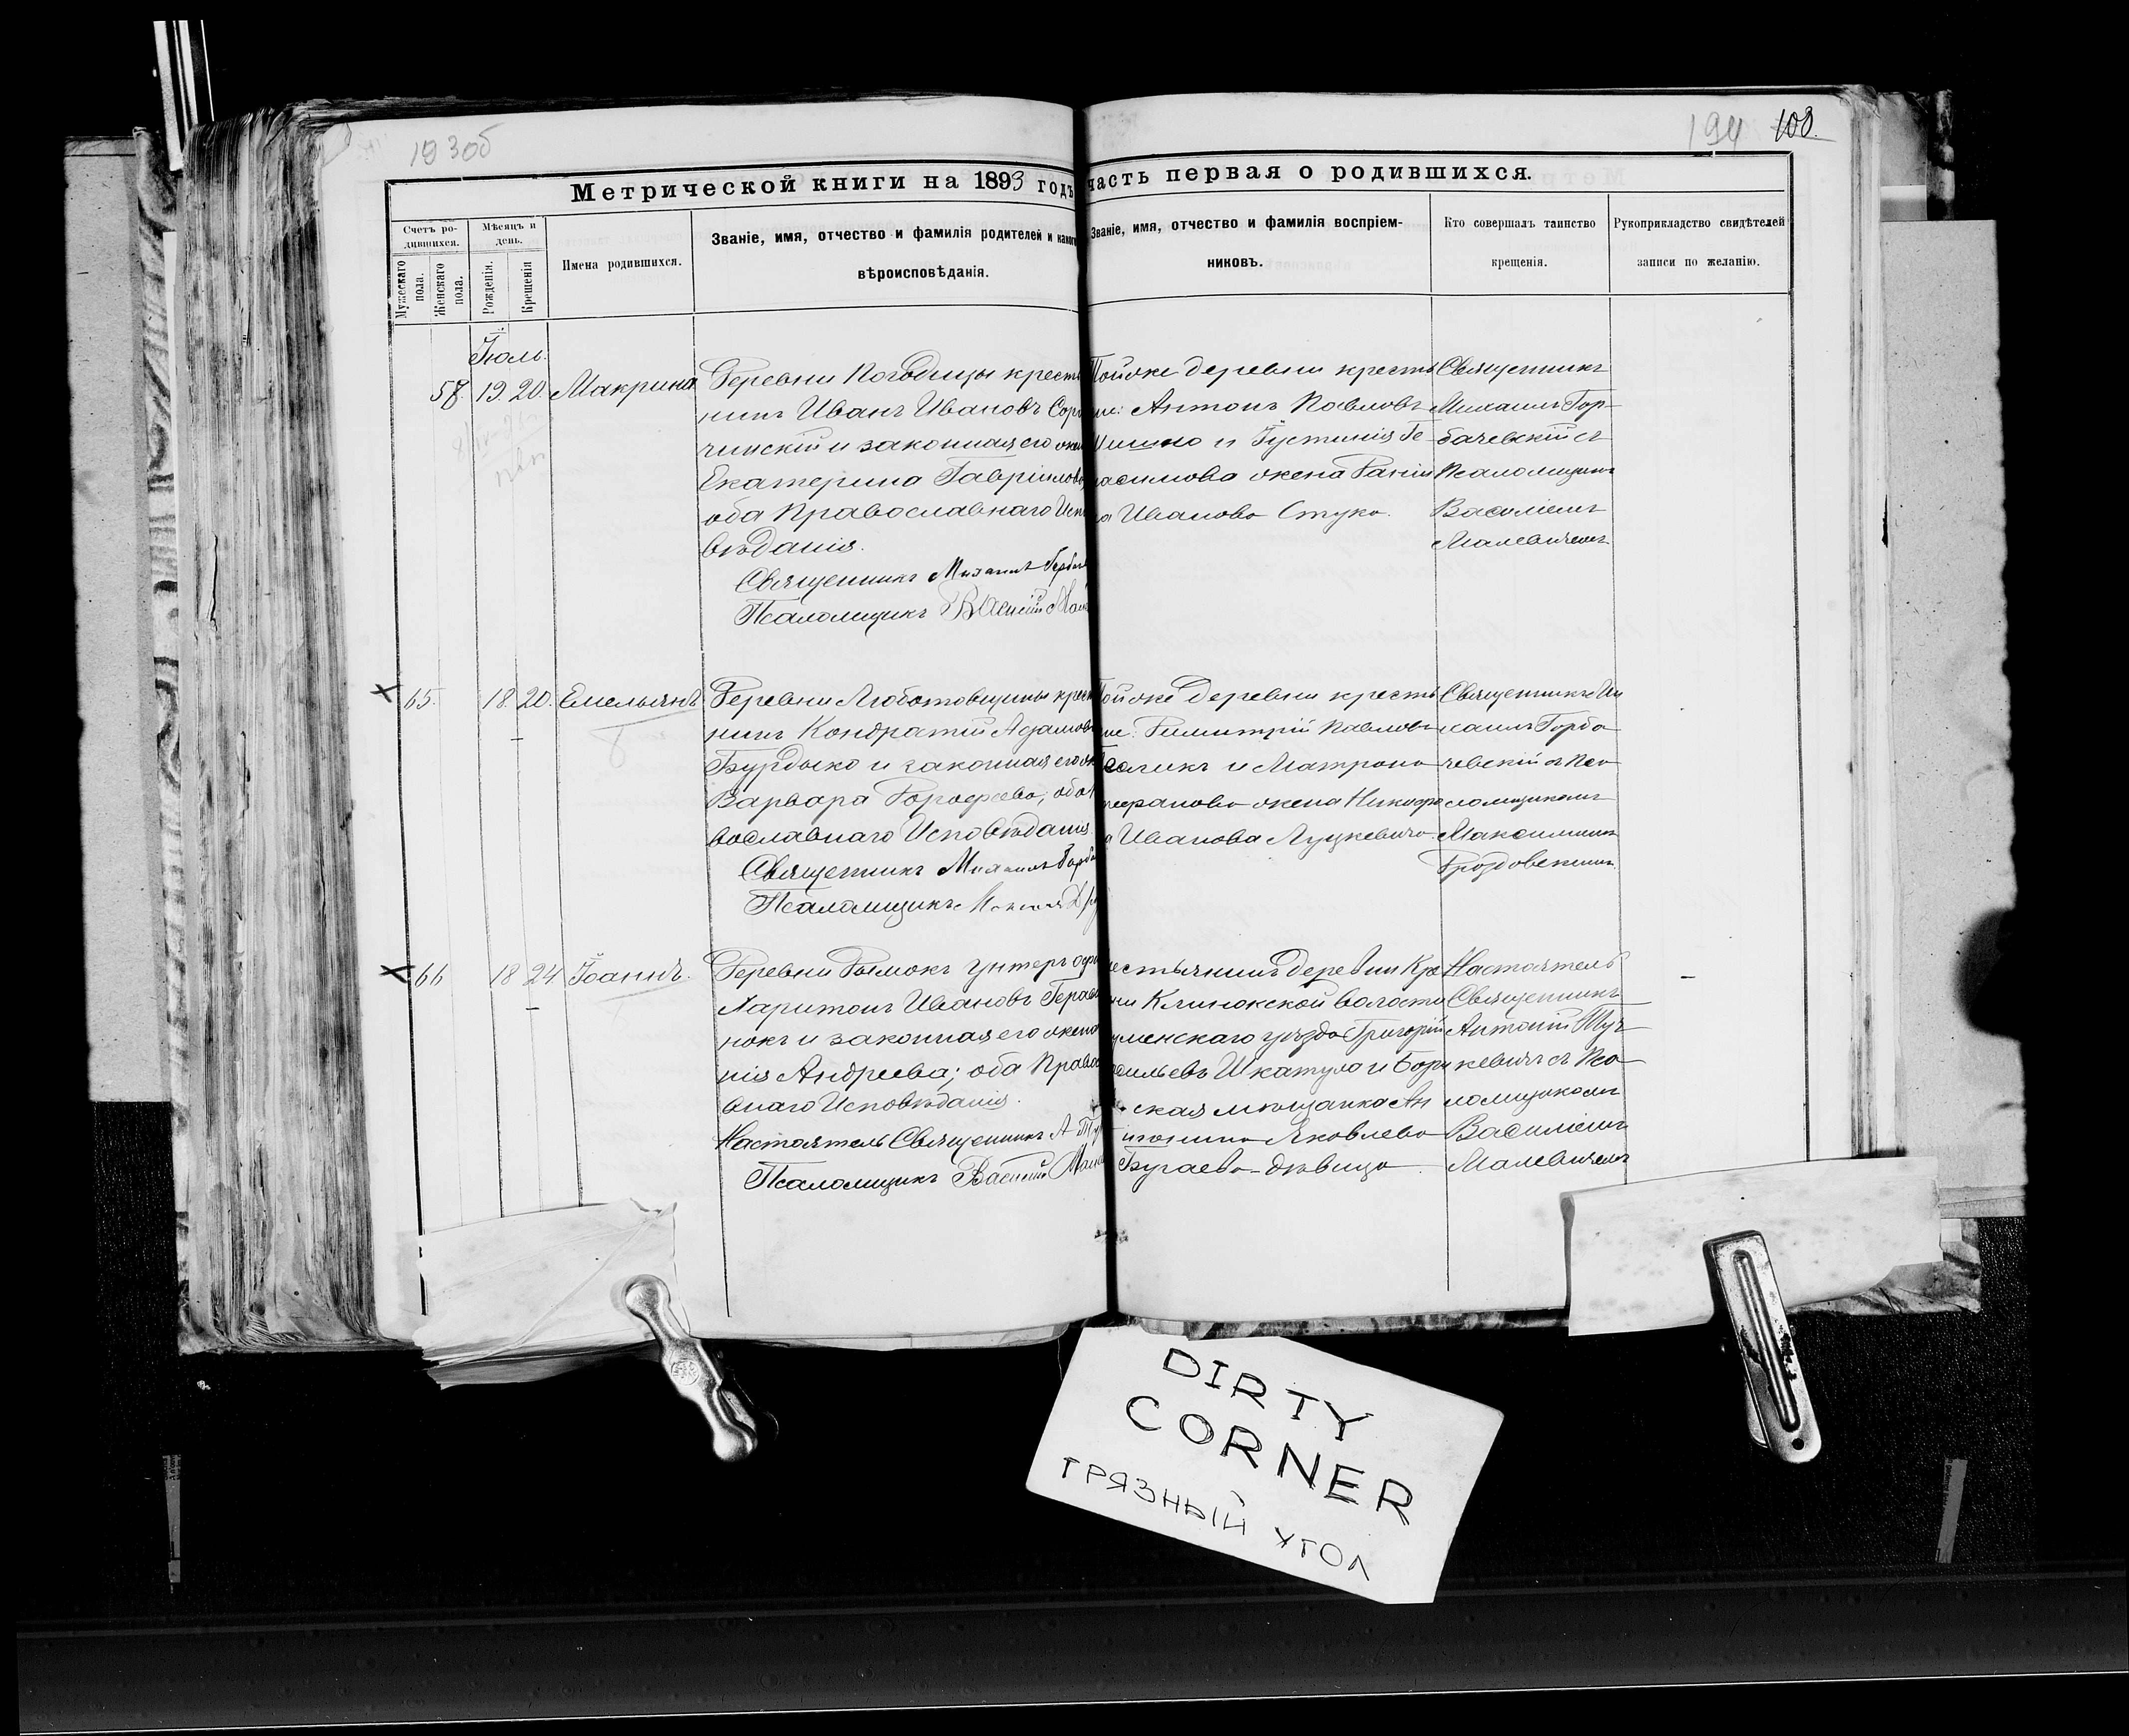 193об
194 108.
Метрической книги на 1893 годъ часть первая о родившихся.
Счетъ родившихся.
Мужескаго пола.
Женскаго пола.
Мѣсяцъ и день.
Рожденія.
Крещенія
Имена родившихся.
Званіе, имя, отчество и фамилія родителей и какого
вѣроисповѣданія.
Званіе, имя, отчество и фамилія воспріем-
никовъ.
Кто совершалъ таинство
крещенія.
Рукоприкладство свидѣтелей
записи по желанію.
Іюль.
58. 19. 20. Макрина
Деревни Погодицы кресть
нинъ Иванъ Ивановъ Сор
чинскій и законная его жен
Екатерина Гавріилова
оба Православнаго Испо
вѣданія.
Священникъ Михаилъ Горбач
Псаломщикъ Василій Мал
Той же деревни кресть
не: Антонъ Павловъ
и Іустинія Ге
расимова жена
Иванова Стука.
Священникъ
Михаилъ Гор-
бачевскій съ
Псаломщикомъ
Василіемъ
Малевичемъ
65. 18. 20. Емельянъ
Деревни Любатовщины крест
нинъ Кондратій Адамовъ
Бурдыко и законная его ж
Варвара Дорофеева, оба П
вославнаго Исповѣданія.
Священникъ Михаилъ Горба
Псаломщикъ
Той же деревни кресть
не: Димитрій Павловъ
и Матрона
жена Никифо
а Иванова Луцкевича.
Священникъ Ми
хаилъ Горба
чевскій съ Пса
ломщикомъ
Максимомъ
Дроздовскимъ.
66 18 24 Іоаннъ.
Деревни Дымокъ унтеръ офи
Харитонъ Ивановъ Гера
нокъ и законная его жена
нія Андреева; оба Право
внаго Исповѣданія.
Настоятель Священникъ А Ту
Псаломщикъ Василій Мале
естьянинъ деревни Кра
ни Клинокской волости
уменскаго уѣзда Григорій
асильевъ Шкатула и Бори
ская мѣщанка Ан
тонина Яковлева
Бугаева - дѣвица.
Настоятель
Священникъ
Антоній Туч
кевичъ съ Пса
ломщикомъ
Василіемъ
Малевичемъ
DIRTY
CORNER
ГРЯЗНЫЙ УГОЛ